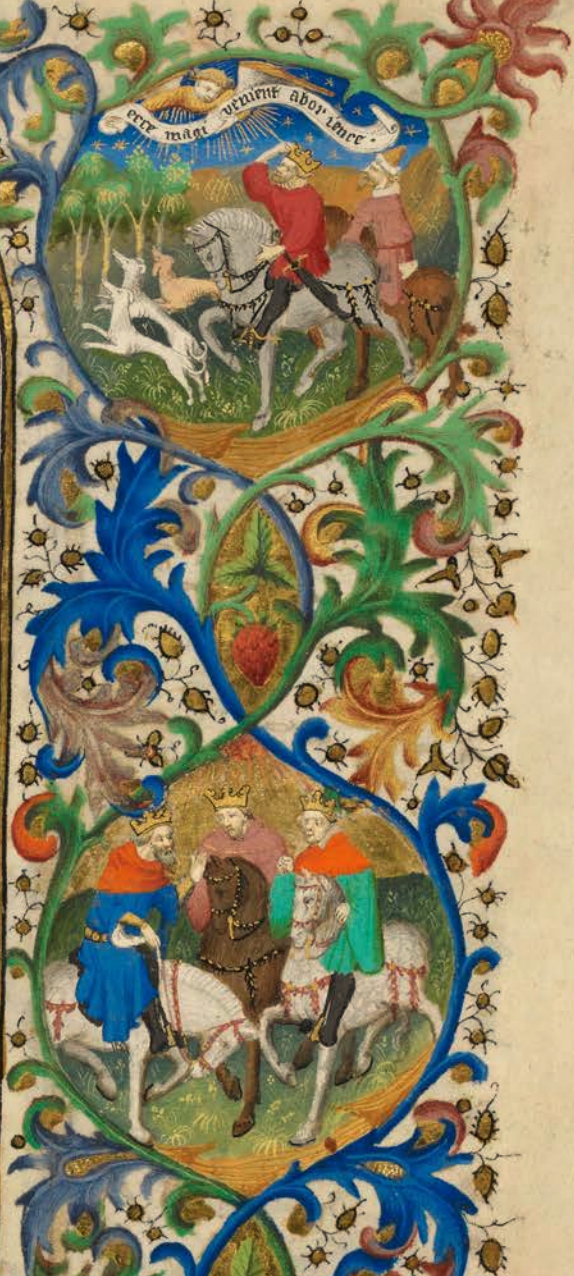 ecce magi venient abor ience